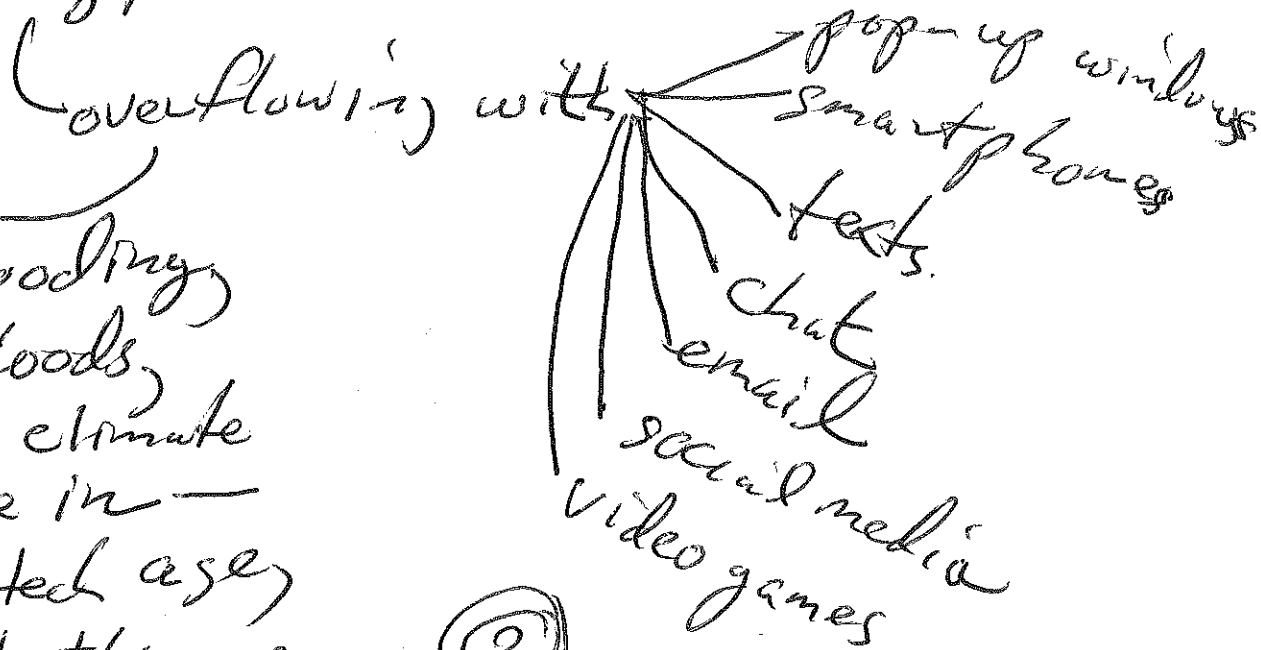 overflowing with
pop-up windows
smartphones
texts.
chat
email
social media
video games
climate
in —
tech age,